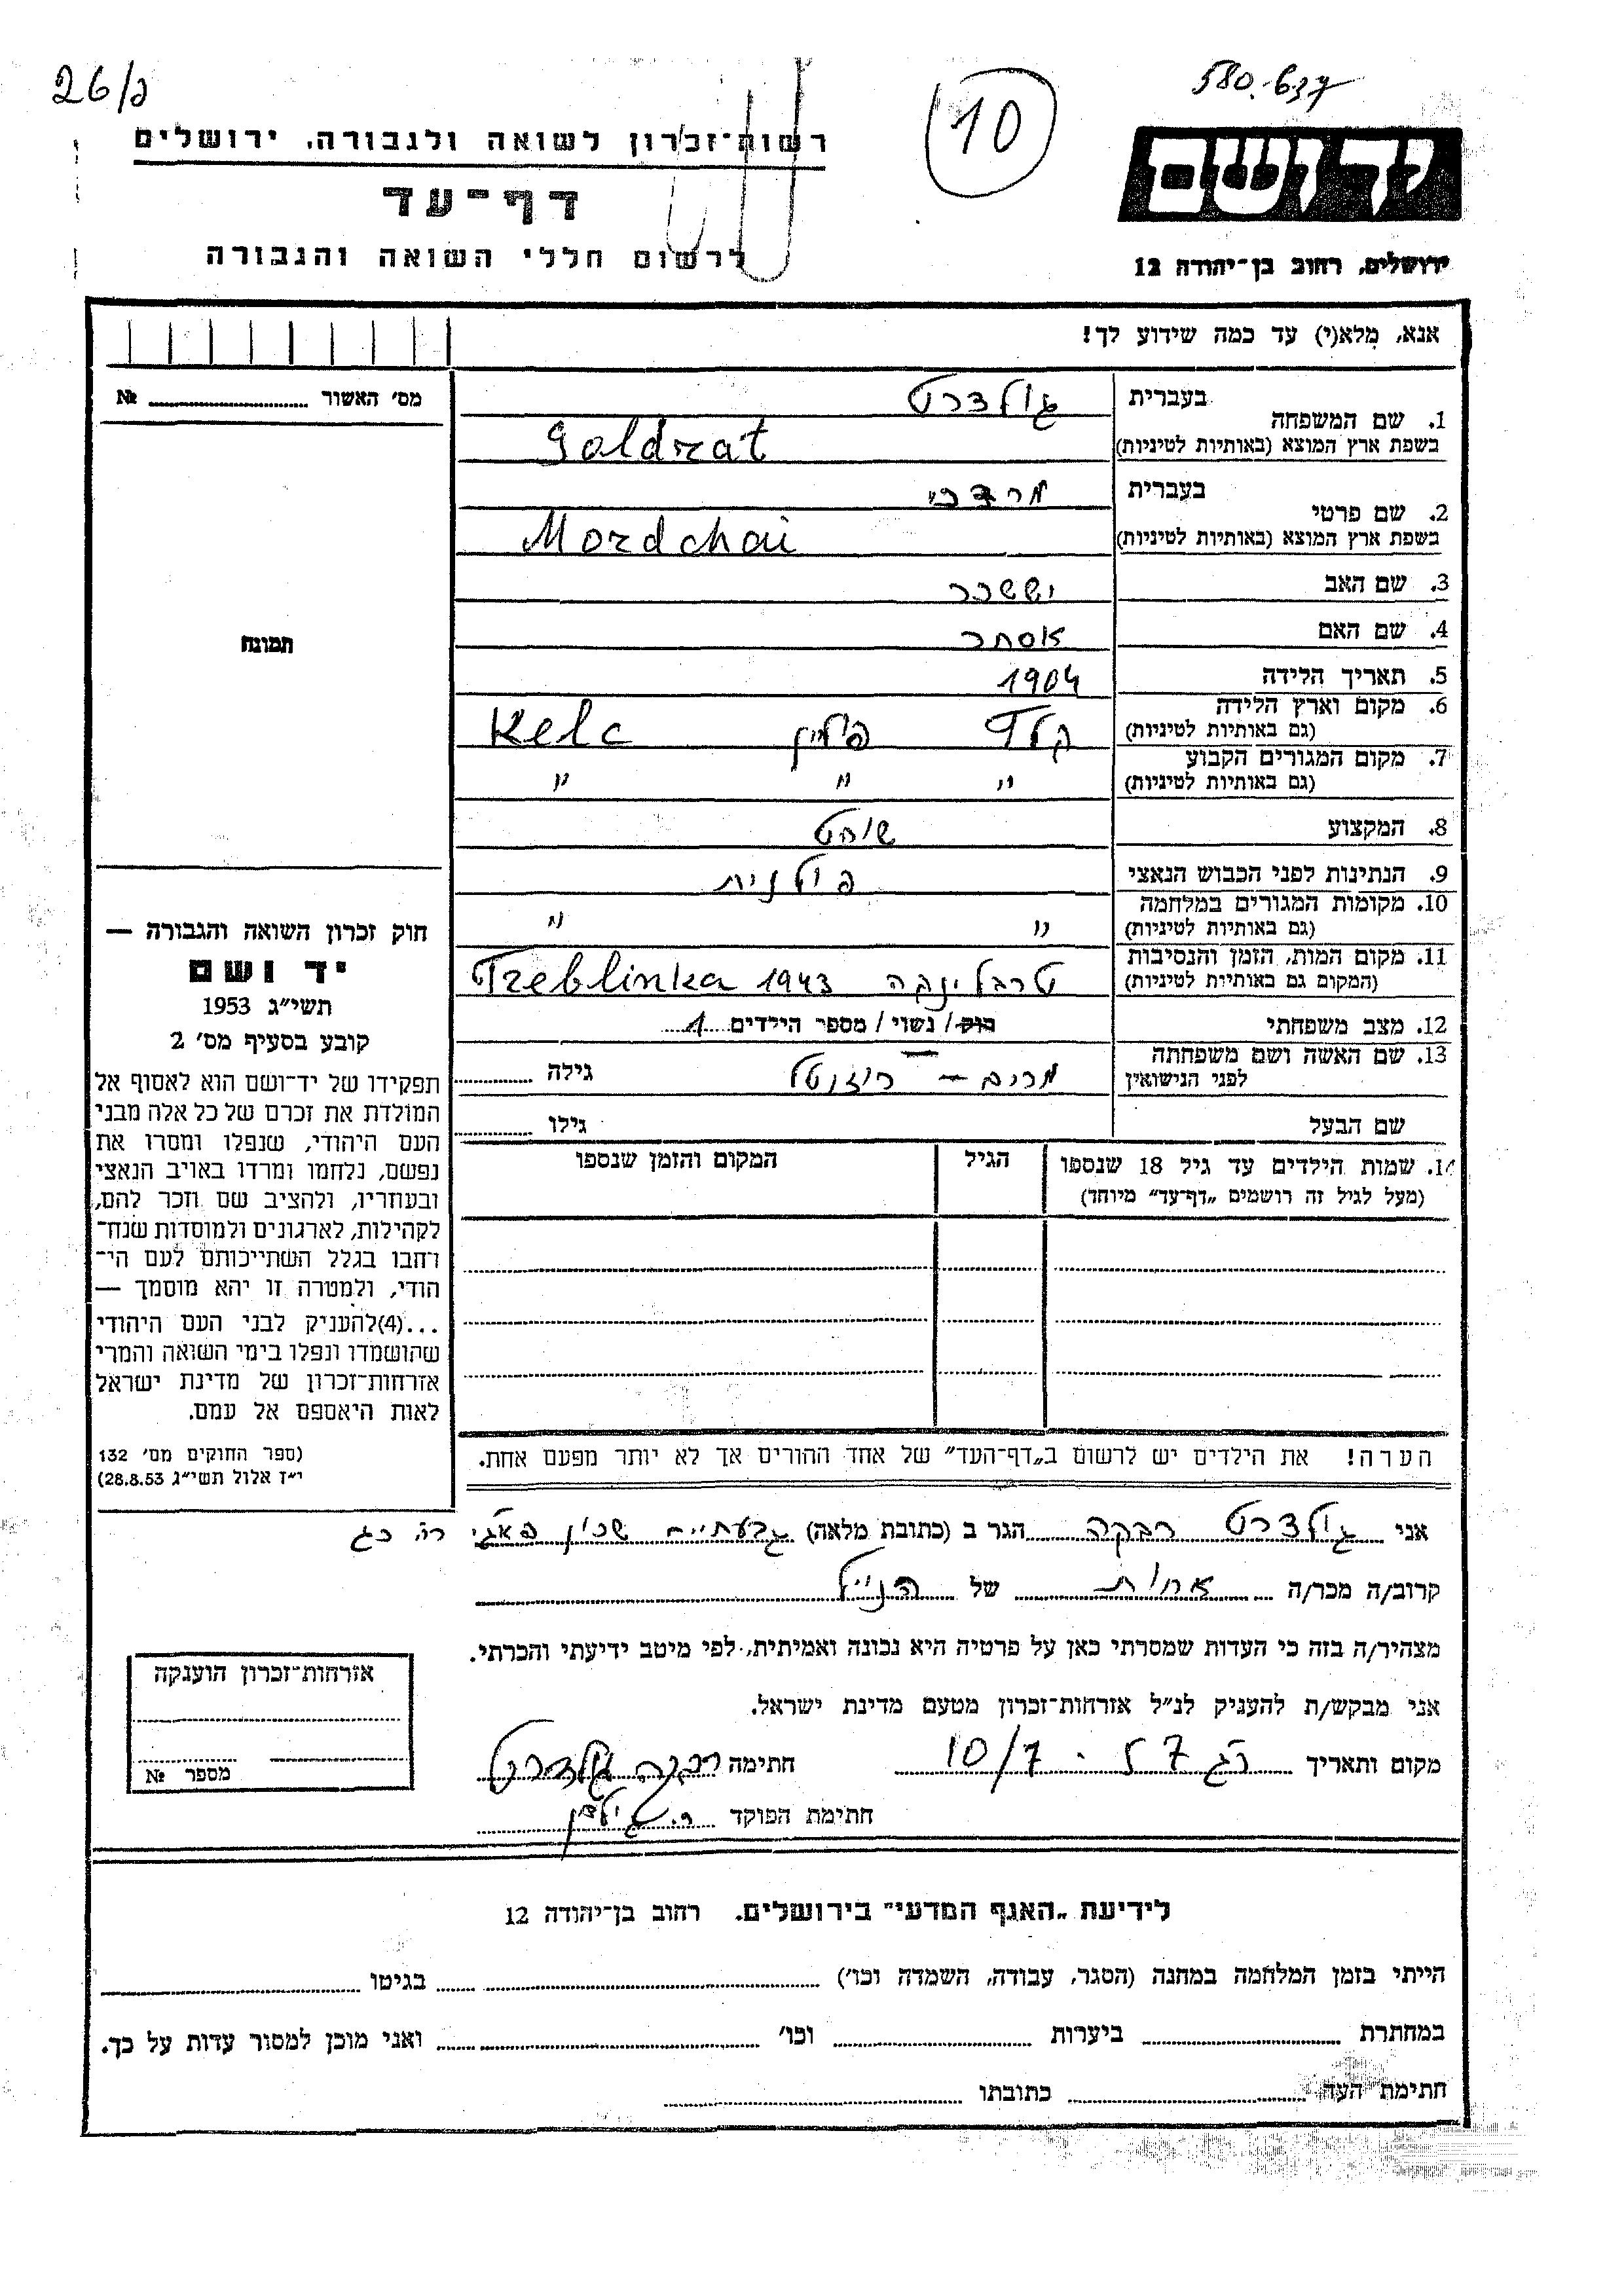 26/ב
580.637
10
רשות־זכרון לשואה ולגבורה, ירושלים
דף־עד
לרשום חללי השואה והגבורה
יד ושם
ירושלים, רחוב בן־יהודה 12
אנא, מלא(י) עד כמה שידוע לך!
מס׳ האשור № 
1. שם המשפחה בעברית גולדרט
בשפת ארץ המוצא (באותיות לטיניות) Goldrat
2. שם פרטי בעברית מרדכי
בשפת ארץ המוצא (באותיות לטיניות) Mordchai
3. שם האב יששכר
4. שם האם אסתר
5. תאריך הלידה 1904
6. מקום וארץ הלידה (גם באותיות לטיניות) קלץ פולין Kelc
7. מקום המגורים הקבוע (גם באותיות לטיניות) " " "
8. המקצוע שוחט
9. הנתינות לפני הכבוש הנאצי פולנית
10. מקומות המגורים במלחמה (גם באותיות לטיניות) " "
11. מקום המות, הזמן והנסיבות (המקום גם באותיות לטיניות) טרבלינקה 1943 Treblinka
12. מצב משפחתי רוק/ נשוי/ מספר הילדים 1
13. שם האשה ושם משפחתה לפני הנישואין מרים – גילה
שם הבעל גילו
14. שמות הילדים עד גיל 18 שנספו (מעל לגיל זה רושמים „דף־עד” מיוחד) הגיל המקום והזמן שנספו
הערה! את הילדים יש לרשום ב„דף־העד” של אחד ההורים אך לא יותר מפעם אחת.
תמונה
חוק זכרון השואה והגבורה —
יד ושם
תשי״ג 1953
קובע בסעיף מס׳ 2
תפקידו של יד־ושם הוא לאסוף אל
המולדת את זכרם של כל אלה מבני
העם היהודי, שנפלו ומסרו את
נפשם, נלחמו ומרדו באויב הנאצי
ובעוזריו, ולהציב שם וזכר להם,
לקהילות, לארגונים ולמוסדות שנח־
רחבו בגלל השתייכותם לעם הי־
הודי, ולמטרה זו יהא מוסמך —
...(4)להעניק לבני העם היהודי
שהושמדו ונפלו בימי השואה והמרי
אזרחות־זכרון של מדינת ישראל
לאות היאספם אל עמם.
(ספר החוקים מס׳ 132
י״ז אלול תשי״ג 28.8.53)
אני גולדרט רבקה הגר ב (כתובת מלאה) גבעתיים שכון
קרוב/ה מכר/ה אחות של הנ״ל
מצהיר/ה בזה כי העדות שמסרתי כאן על פרטיה היא נכונה ואמיתית, לפי מיטב ידיעתי והכרתי.
אני מבקש/ת להעניק לנ״ל אזרחות־זכרון מטעם מדינת ישראל.
מקום ותאריך ר״ג 57 . 10/7 חתימה רבקה גולדרט
חתימת הפוקד
אזרחות־זכרון הוענקה
מספר №
לידיעת „האגף המדעי” בירושלים. רחוב בן־יהודה 12
הייתי בזמן המלחמה במחנה (הסגר, עבודה, השמדה וכו׳) בגיטו
במחתרת ביערות וכו׳ ואני מוכן למסור עדות על כך.
חתימת העד כתובתו